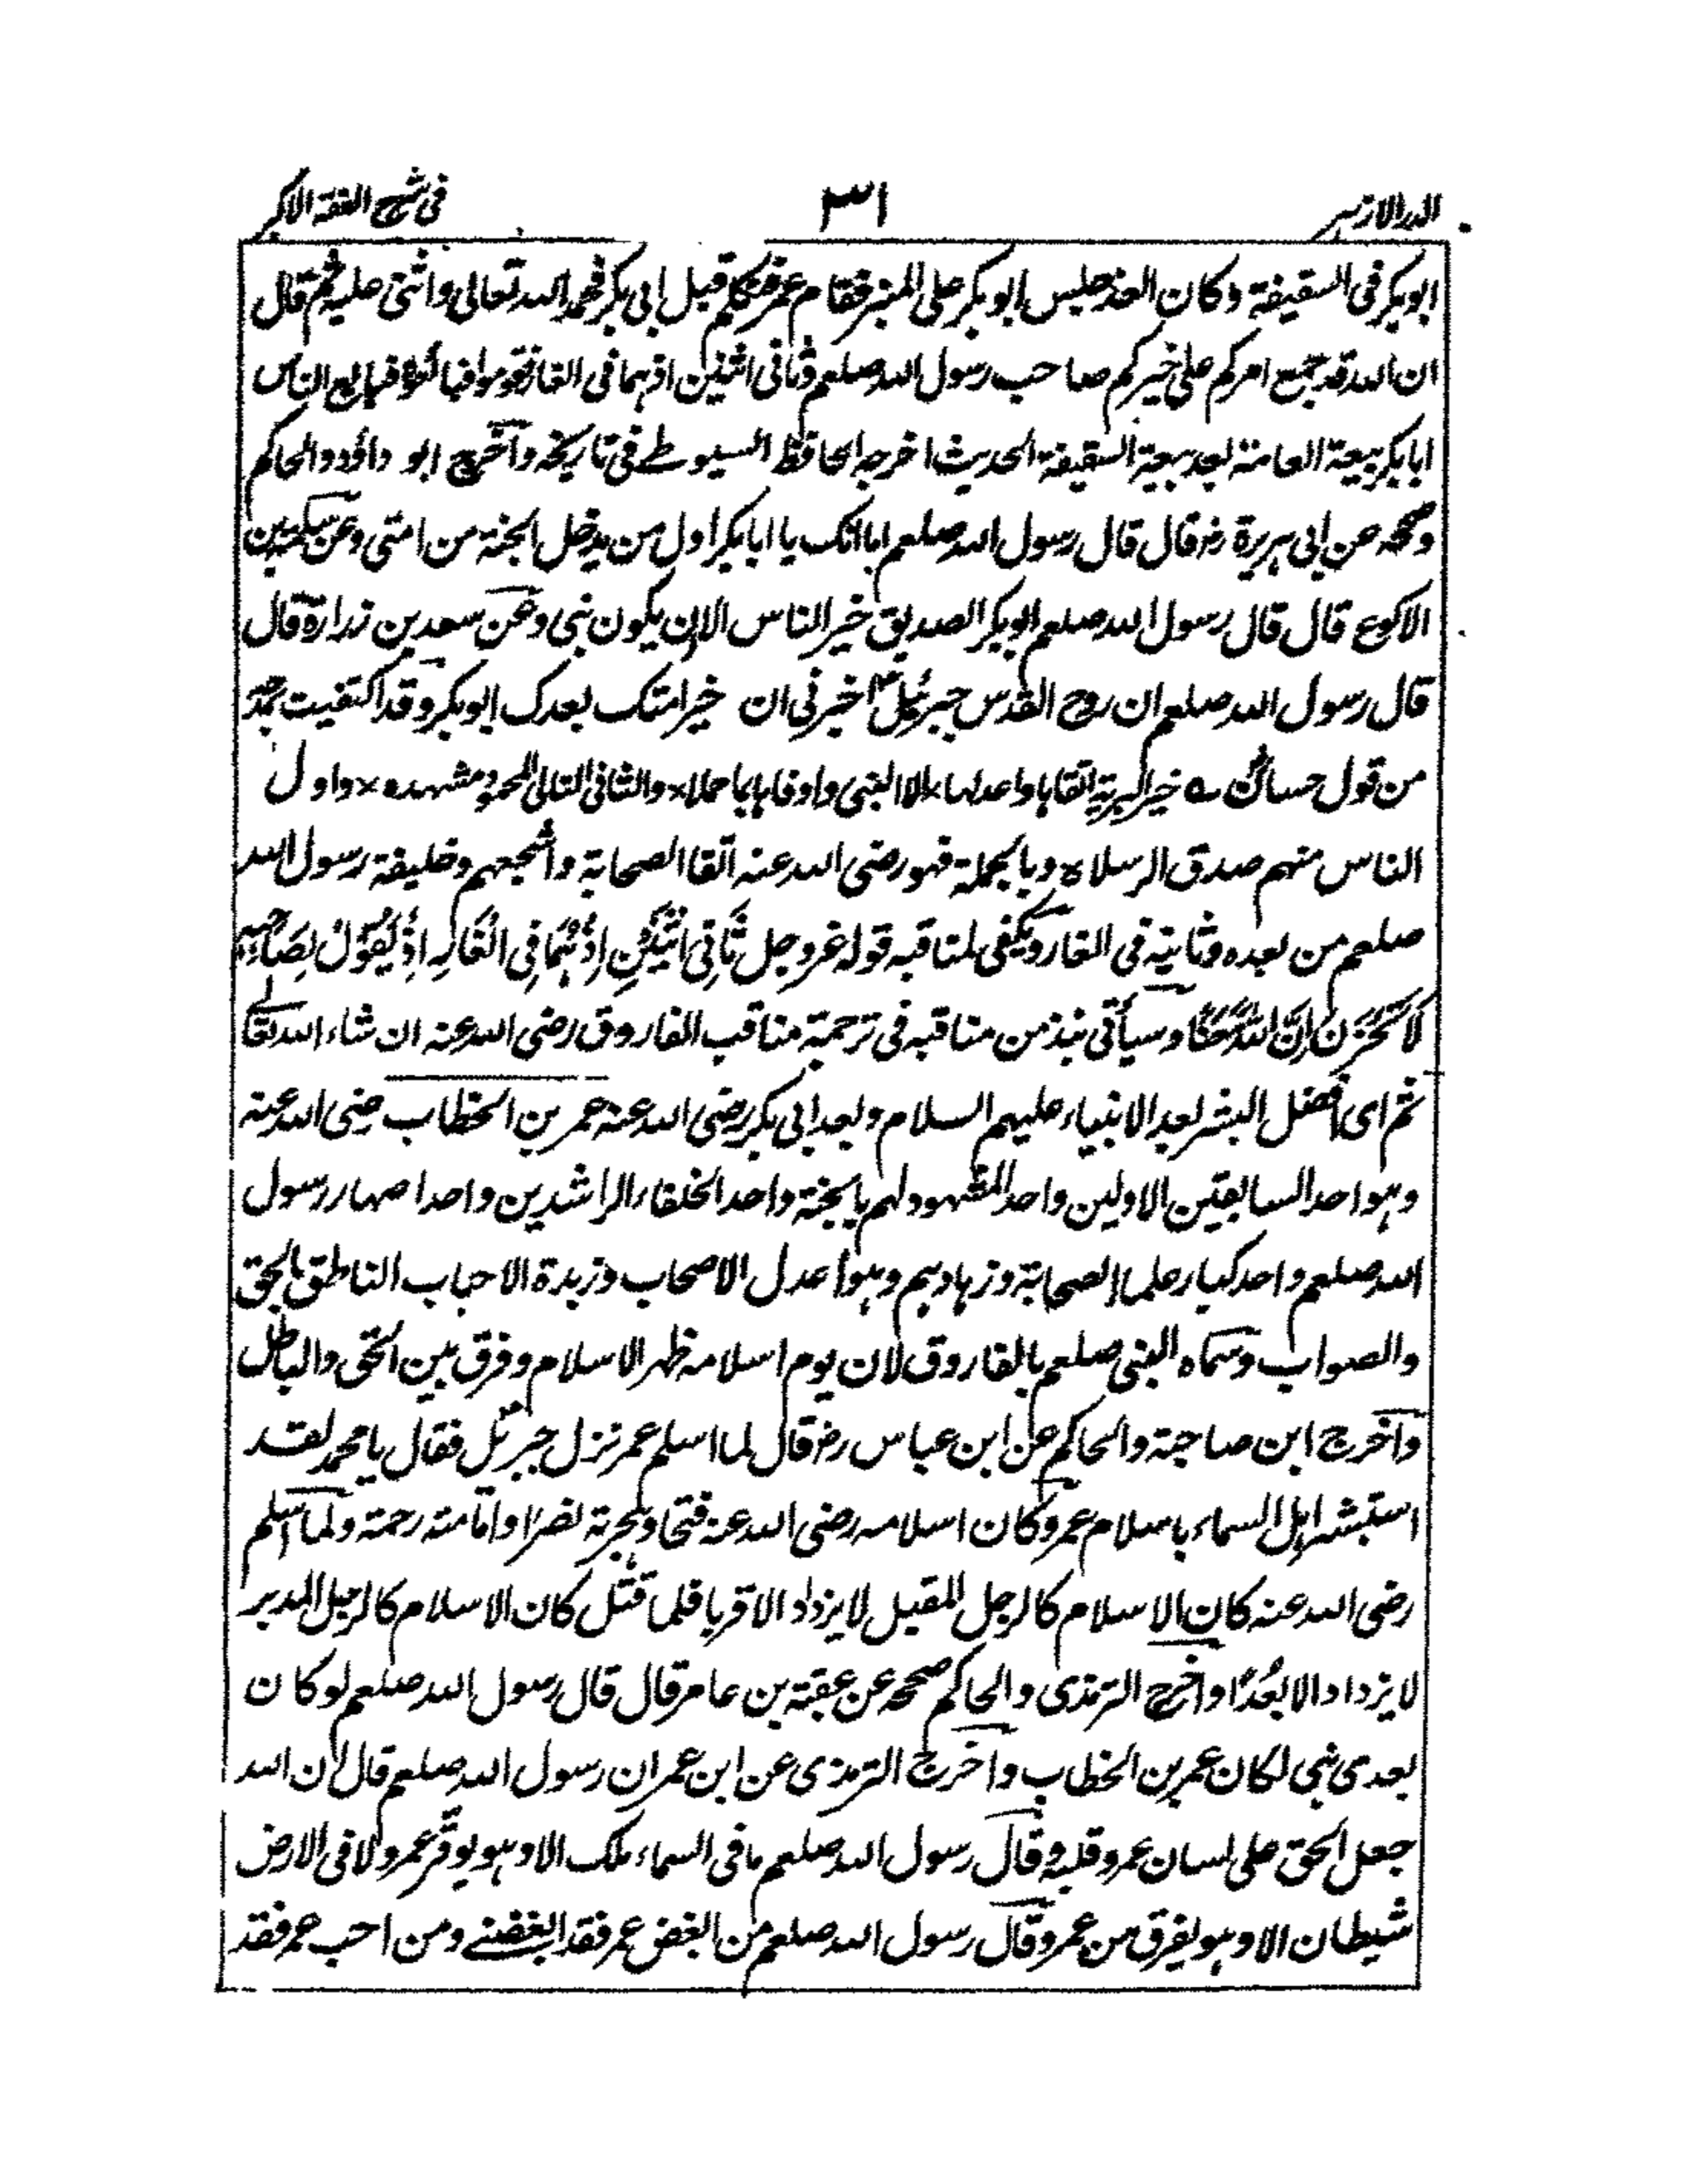 الدر الازهر ٣١ فی شرح الفقه الاکبر
ابوبکر فی السقیفة وکان الغد جلس ابوبکر علی المنبر فقام عمر فتکلم قبل ابی بکر فحمد الله تعالی واثنی علیه ثم قال
ان الله قد جمع امرکم علی خیرکم صاحب رسول الله صلعم وثانی اثنین اذ هما فی الغار فقوموا فبایعوه فبایع الناس
ابابکر بیعة العامة بعد بیعة السقیفة الحدیث اخرجه الحافظ السیوطے فی تاریخه وآخرج ابو داؤد والحاکم
وصححه عن ابی هریرة رضـ قال قال رسول الله صلعم اما انک یا ابابکر اول من یدخل الجنة من امتی وعن سلمة بن
الاکوع قال قال رسول الله صلعم ابوبکر الصدیق خیر الناس الا ان یکون نبی وعن سعد بن زرارة قال
قال رسول الله صلعم ان روح القدس جبرئیل اخبرنی ان خیر امتک بعدک ابوبکر وقد اکتفیت
من قول حسان خیر البریة اتقاها واعدلها × الا النبی واوفاها بما حملا × والثانی التالی المحمود مشهده × واول
الناس منهم صدق الرسلا ه وبالجملة فهو رضی الله عنه اتقا الصحابة واشجعهم وخلیفة رسول الله
صلعم من بعده وثانیه فی الغار ویکفی لمناقبه قوله عز وجل ثَانِیَ اثْنَیْنِ اِذْ هُمَا فِی الْغَارِ اِذْ یَقُوْلُ لِصَاحِبِهٖ
لَا تَحْزَنْ اِنَّ اللهَ مَعَنَا وسیأتی نبذ من مناقبه فی ترجمة مناقب الفاروق رضی الله عنه ان شاء الله تعالےٰ
ثم ای افضل البشر بعد الانبیاء علیهم السلام وبعد ابی بکر رضی الله عنه عمر بن الخطاب رضی الله عنه
وهو احد السابقین الاولین واحد المشهود لهم بالجنة واحد الخلفاء الراشدین واحد اصهار رسول
الله صلعم واحد کبار علماء الصحابة وزهادهم وهو اعدل الاصحاب وزبدة الاحباب الناطق بالحق
والصواب وسماه النبی صلعم بالفاروق لان یوم اسلامه ظهر الاسلام وفرق بین الحق والباطل
وآخرج ابن ماجة والحاکم عن ابن عباس رضـ قال لما اسلم عمر نزل جبرئل فقال یا محمد لقد
استبشر اهل السماء باسلام عمر وکان اسلامه رضی الله عنه فتحا وهجرته نصرا وامامته رحمة ولما اسلم
رضی الله عنه کان الاسلام کالرجل المقبل لا یزداد الا قربا فلما قتل کان الاسلام کالرجل المدبر
لا یزداد الا بعُدًا واخرج الترمذی والحاکم صححه عن عقبة بن عامر قال قال رسول الله صلعم لو کان
بعدی نبی لکان عمر بن الخطاب وآخرج الترمذی عن ابن عمر ان رسول الله صلعم قال ان الله
جعل الحق علی لسان عمر وقلبه وقال رسول الله صلعم ما فی السماء ملک الا وهو یوقّر عمر ولا فی الارض
شیطان الا وهو یفرق من عمر وقال رسول الله صلعم من ابغض عمر فقد ابغضنے ومن احب عمر فقد